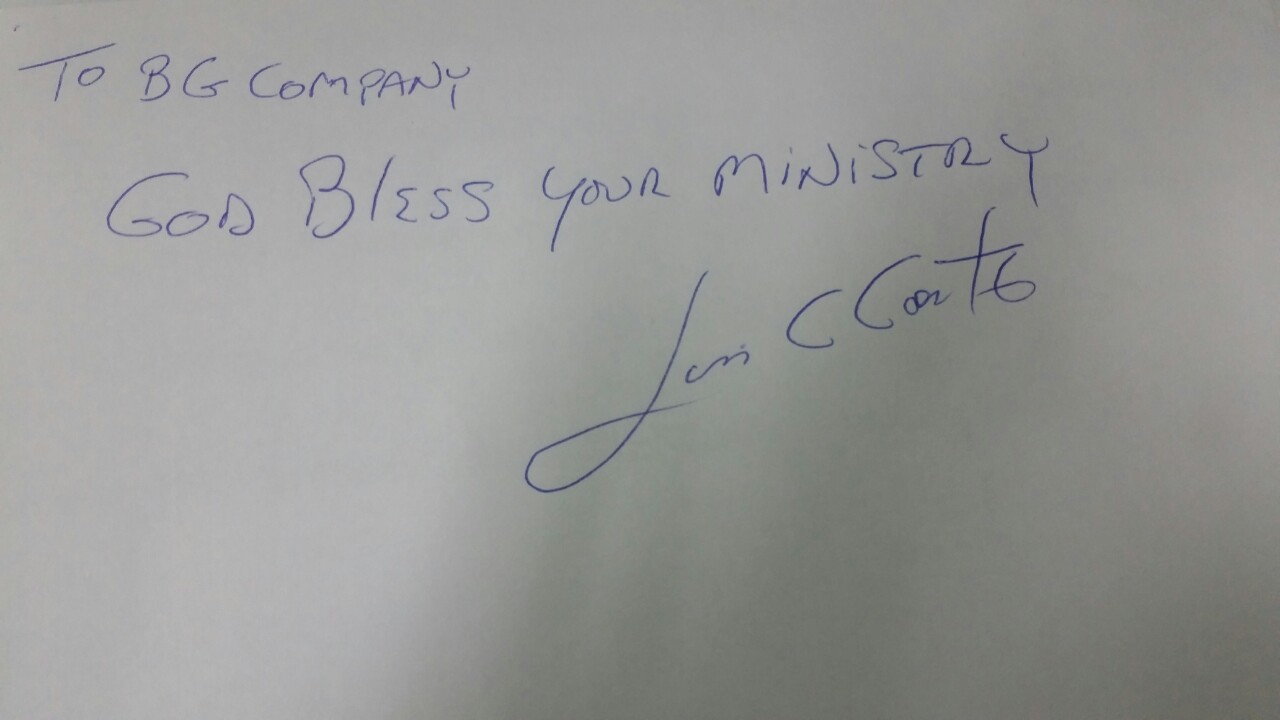 To BG COMPANY
GOD Bless YOUR MINISTRY
C